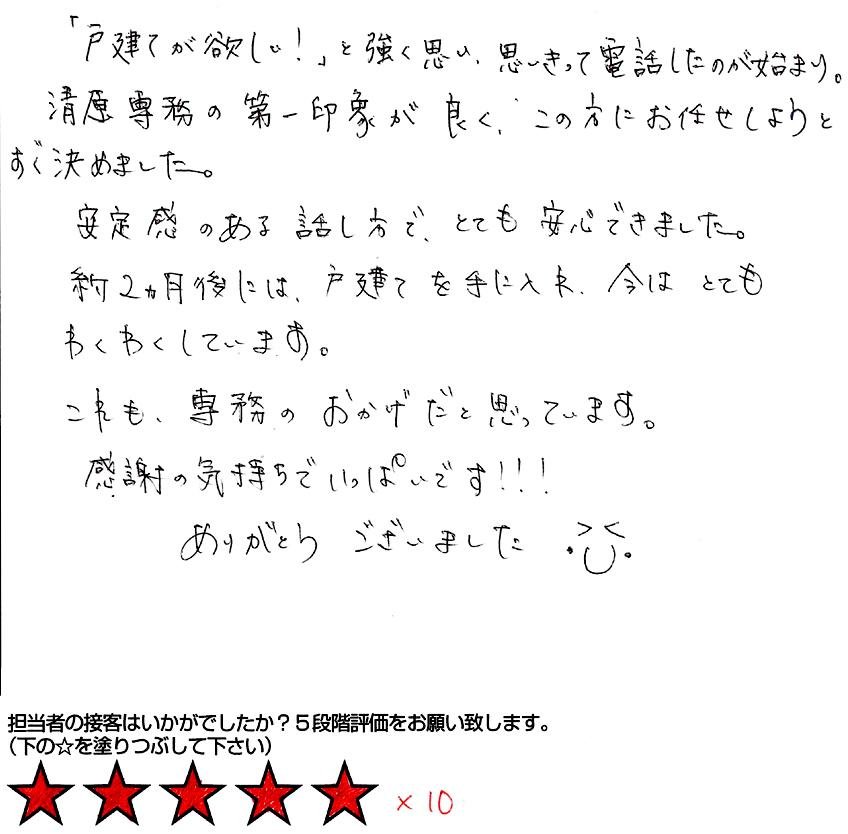 「戸建てが欲しい！」と強く思い、思いきって電話したのが始まり。
清原専務の第一印象が良く、この方にお任せしようと
すぐ決めました。
安定感のある話し方で、とても安心できました。
約2ヵ月後には、戸建てを手に入れ、今はとても
わくわくしています。
これも、専務のおかげだと思っています。
感謝の気持ちでいっぱいです!!!
ありがとうございました
担当者の接客はいかがでしたか？５段階評価をお願い致します。
（下の☆を塗りつぶして下さい）
★★★★★ ×10